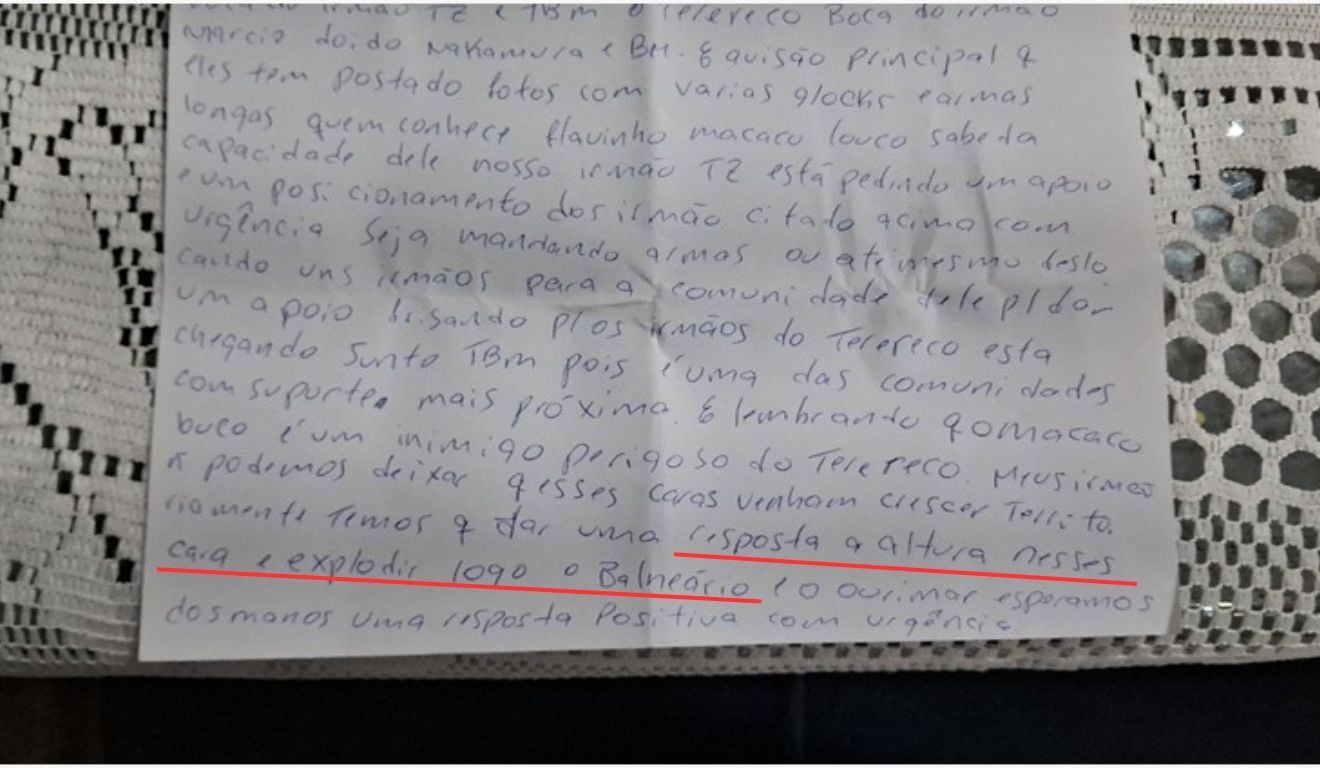 irmão TZ e TBM o Terereco Boca do irmão
Marcio doido Nakamura e BM. E avisão principal q
eles tem postado fotos com varias glocks e armas
longas quem conhece flavinho macaco louco sabe da
capacidade dele nosso irmão TZ está pedindo um apoio
e um posicionamento dos irmão citado acima com
urgência seja mandando armas ou até mesmo deslo
cando uns irmãos para a comunidade dele p/ dar
um apoio p/ os irmãos do Terereco esta
chegando Junto TBM pois é uma das comunidades
com suporte mais próxima. E lembrando q o macaco
louco é um inimigo perigoso do Terereco. Meus irmãos
ñ podemos deixar q esses caras venham crescer Territo.
riamente Temos q dar uma resposta a altura nesses
cara e explodir logo o Balneário e o ourimar esperamos
dos manos uma resposta Positiva com urgência